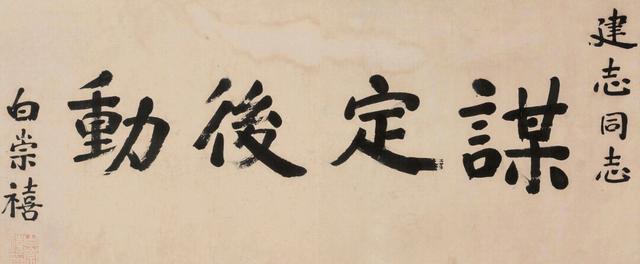 建志同志
謀定後動
白崇禧